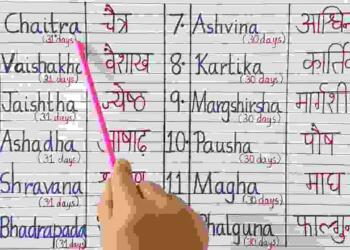 Chaitra चैत्र 7. Ashvina आश्वि
(31 days) (30 days)
Vaishakha वैशाख 8. Kartika कार्ति
(31 days) (30 days)
Jaishtha ज्येष्ठ 9. Margshirsha मार्गशी
(31 days) (30 days)
Ashadha 10. Pausha पौष
(31 days) (30 days)
Shravana 11 Magha माघ
(31 days) (30 days)
Bhadrapada Phalguna फाल्गु
(31 days) (30 days)